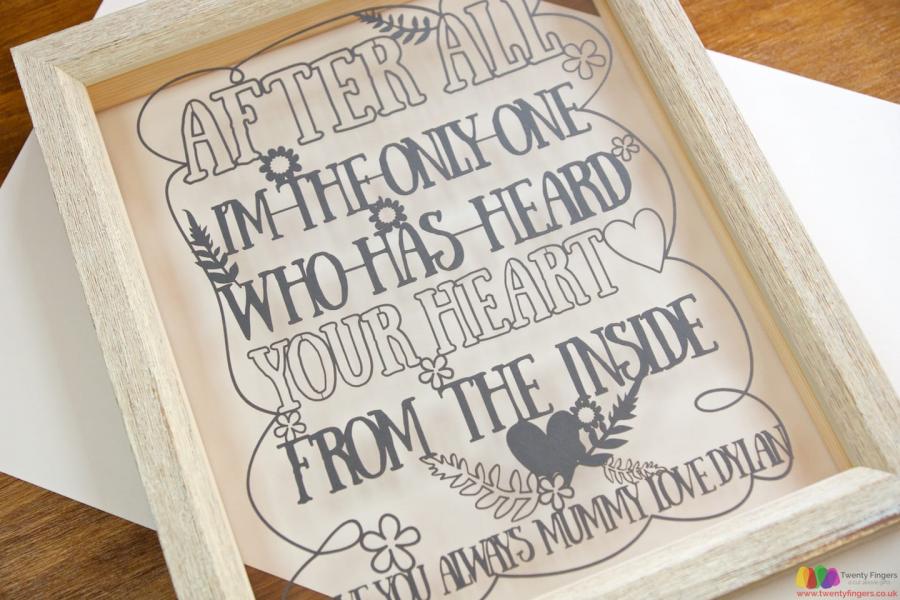 AFTER ALL
I'M THE ONLY ONE
WHO HAS HEARD
YOUR HEART
FROM THE INSIDE
YOU ALWAYS MUMMY LOVE DYLAN
Twenty Fingers
www.twentyfingers.co.uk